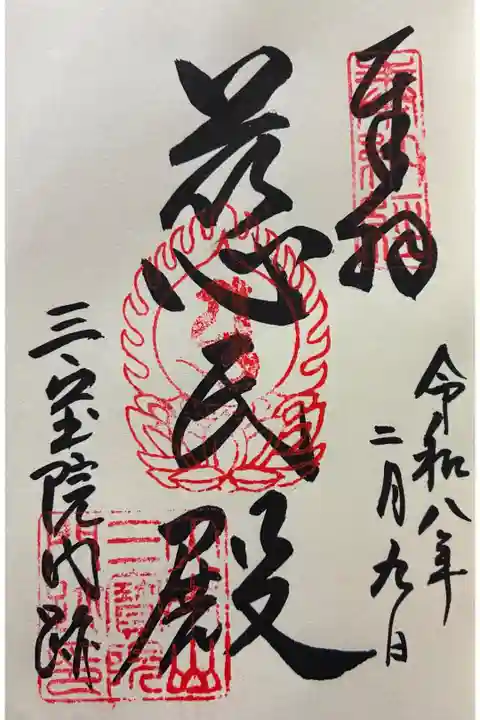 奉拝
令和八年
二月九日
慈氏殿
三宝院門跡
三寶院